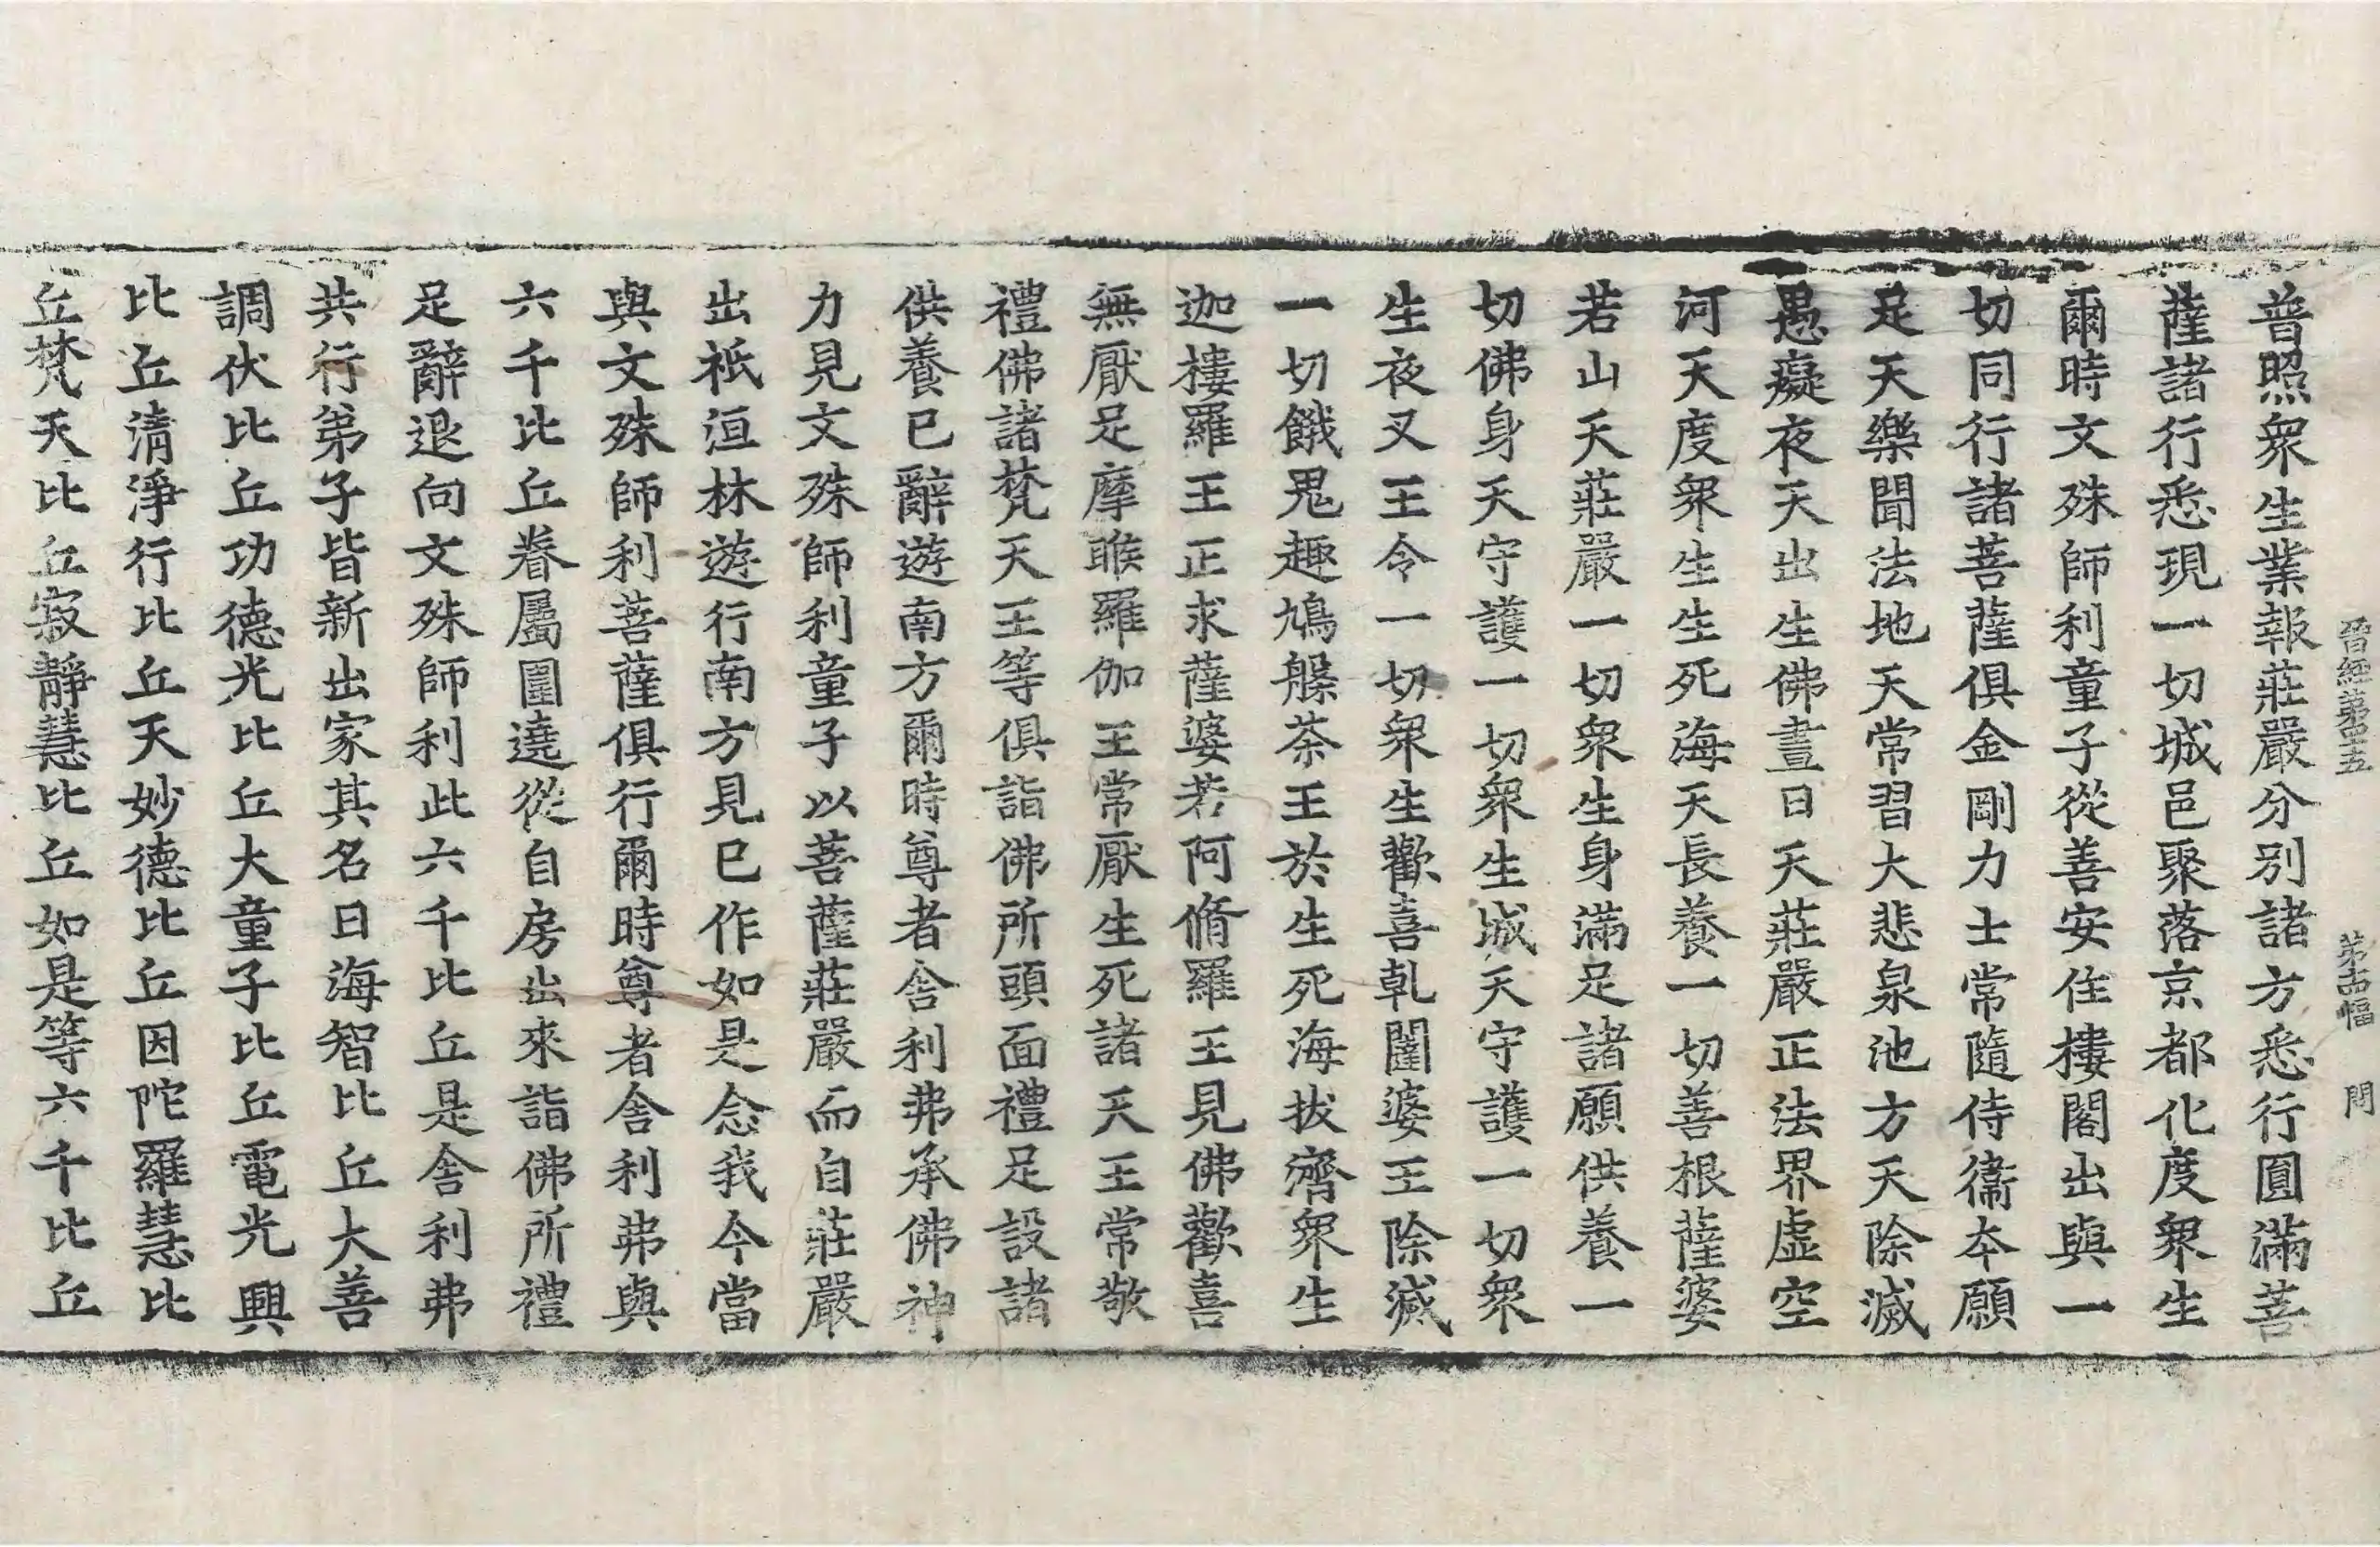 晉經第四十五　第十四幅　問
普照衆生業報莊嚴分別諸方悉行圓滿菩
薩諸行悉現一切城邑聚落京都化度衆生
爾時文殊師利童子從善安住樓閣出與一
切同行諸菩薩俱金剛力士常隨侍衛本願
足天樂聞法地天常習大悲泉池方天除滅
愚癡夜天出生佛晝日天莊嚴正法界虛空
河天度衆生生死海天長養一切善根薩婆
若山天莊嚴一切衆生身滿足諸願供養一
切佛身天守護一切衆生城天守護一切衆
生夜叉王令一切衆生歡喜乹闥婆王除滅
一切餓鬼趣鳩槃荼王於生死海拔濟衆生
迦樓羅王正求薩婆若阿脩羅王見佛歡喜
無厭足摩睺羅伽王常厭生死諸天王常敬
禮佛諸梵天王等俱詣佛所頭面禮足設諸
供養已辭遊南方爾時尊者舎利弗承佛神
力見文殊師利童子以菩薩莊嚴而自莊嚴
出祇洹林遊行南方見已作如是念我今當
與文殊師利菩薩俱行爾時尊者舎利弗與
六千比丘眷屬圍遶從自房出來詣佛所禮
足辭退向文殊師利此六千比丘是舎利弗
共行弟子皆新出家其名曰海智比丘大善
調伏比丘功德光比丘大童子比丘電光興
比丘清淨行比丘天妙德比丘因陀羅慧比
丘梵天比丘寂靜慧比丘如是等六千比丘